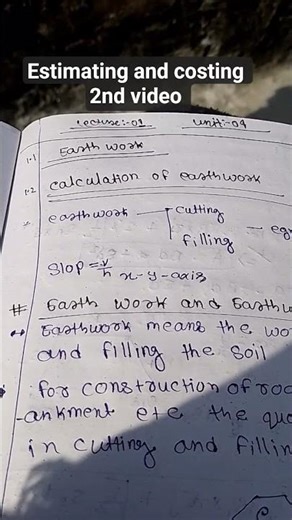 Estimating and costing
2nd video
Lecture:-01 Unit:-04
1.1 Earth work
1.2 calculation of earthwork
earthwork cutting
filling
Slop = v/h x-y-axis
# Earth work and Earth
Earthwork means the
and filling the soil
for construction of
-ankment etc the
in cutting and